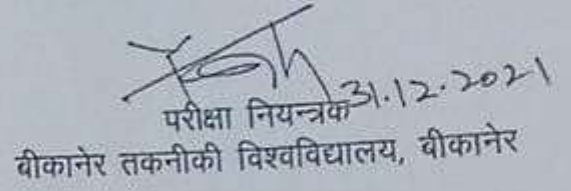 31.12.2021
परीक्षा नियन्त्रक
बीकानेर तकनीकी विश्वविद्यालय, बीकानेर